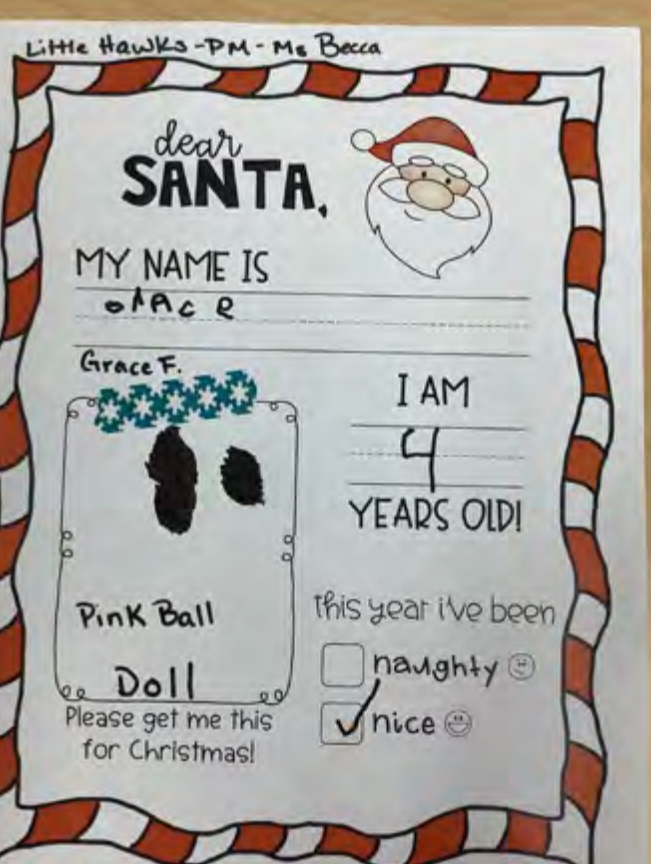 Little Hawks - PM - Ms Becca
dear
SANTA,
MY NAME IS
grace
Grace F.
I AM
4
YEARS OLD!
Pink Ball
Doll
Please get me this
for Christmas!
this year i've been
naughty
nice